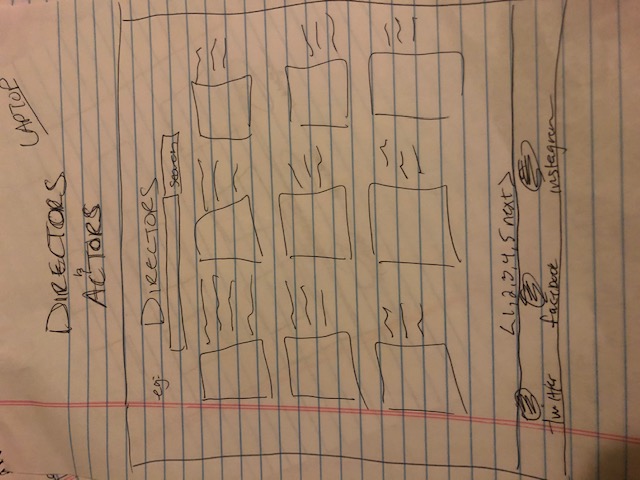 LAPTOP
DIRECTORS
&
ACTORS
eg: DIRECTORS
search
<1,2,3,4,5 next>
twitter facebook instagram